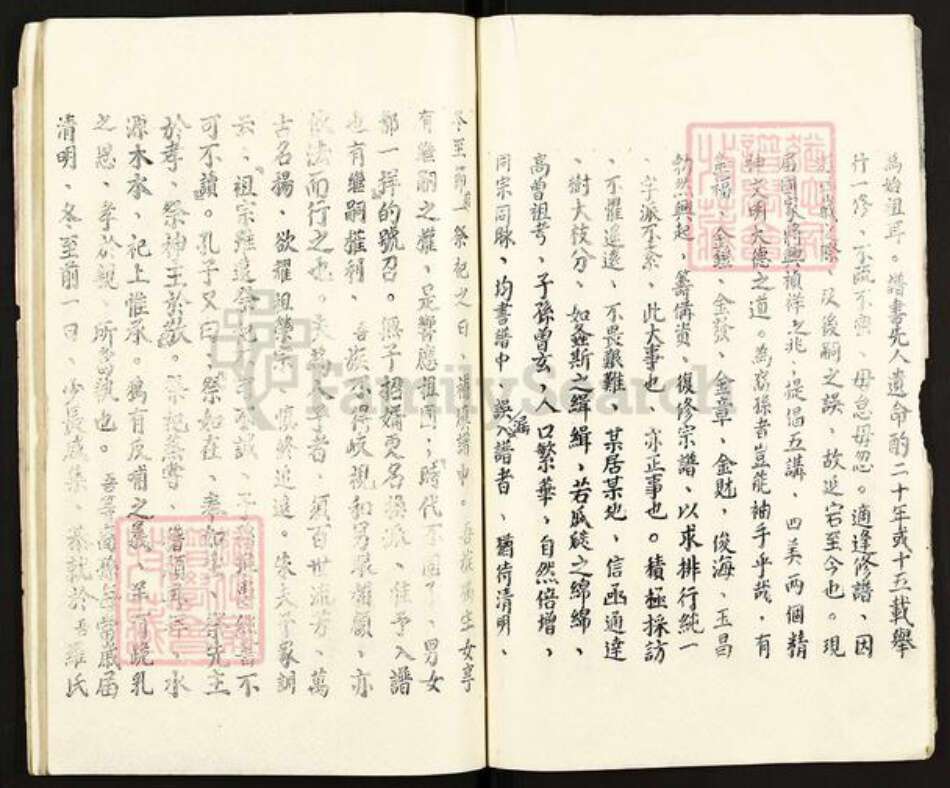 為始祖耳。譜書先人遺命酌二十年或十五載舉
行一修、不疏不宗、毋怠毋忽。適逢修譜、因
際、及後嗣之誤、故延宕至今也。現
國家將興禎祥之兆、提倡五講、四美兩個精
神文明大德之道。為裔孫者豈能袖手乎哉、有
金發、金章、金財、俊海、玉昌
勃然興起、籌備資、復修宗譜、以求排行統一
、字派不紊、此大事也、亦正事也。積極採訪
、不懼遥遠、不畏艱難、某居某地、信函通達
、樹大枝分、如螽斯之緝緝、若瓜瓞之綿綿、
高曾祖考、子孫曾玄、人口繁華、自然倍增、
同宗同脉、均書譜中、誤漏入譜者、猶待清明、
冬至前一祭祀之日、譜中。吾族女享
有繼嗣之權、是響應祖國；時代不同了、男女
都一樣的號召。無子招婿更名換派、准予入譜
也有繼嗣權利、吾族不得歧視和另眼相顧、亦
依法而行之也。夫為人子者、須百世流芳、萬
古名揚、欲耀祖榮宗、慎終追遠。朱夫子家訓
云；祖宗雖遠祭祀不可不誠、子孫雖愚經書不
可不讀。孔子又曰；祭如在、
於孝、祭神主於敬。水
源木本、祀上惟承。鴉有反哺之義、羊有跪乳
之恩、孝於親、所當執也。吾等裔孫每當歲届
清明、冬至前一日、少長咸集、恭就於吾羅氏
FamilySearch